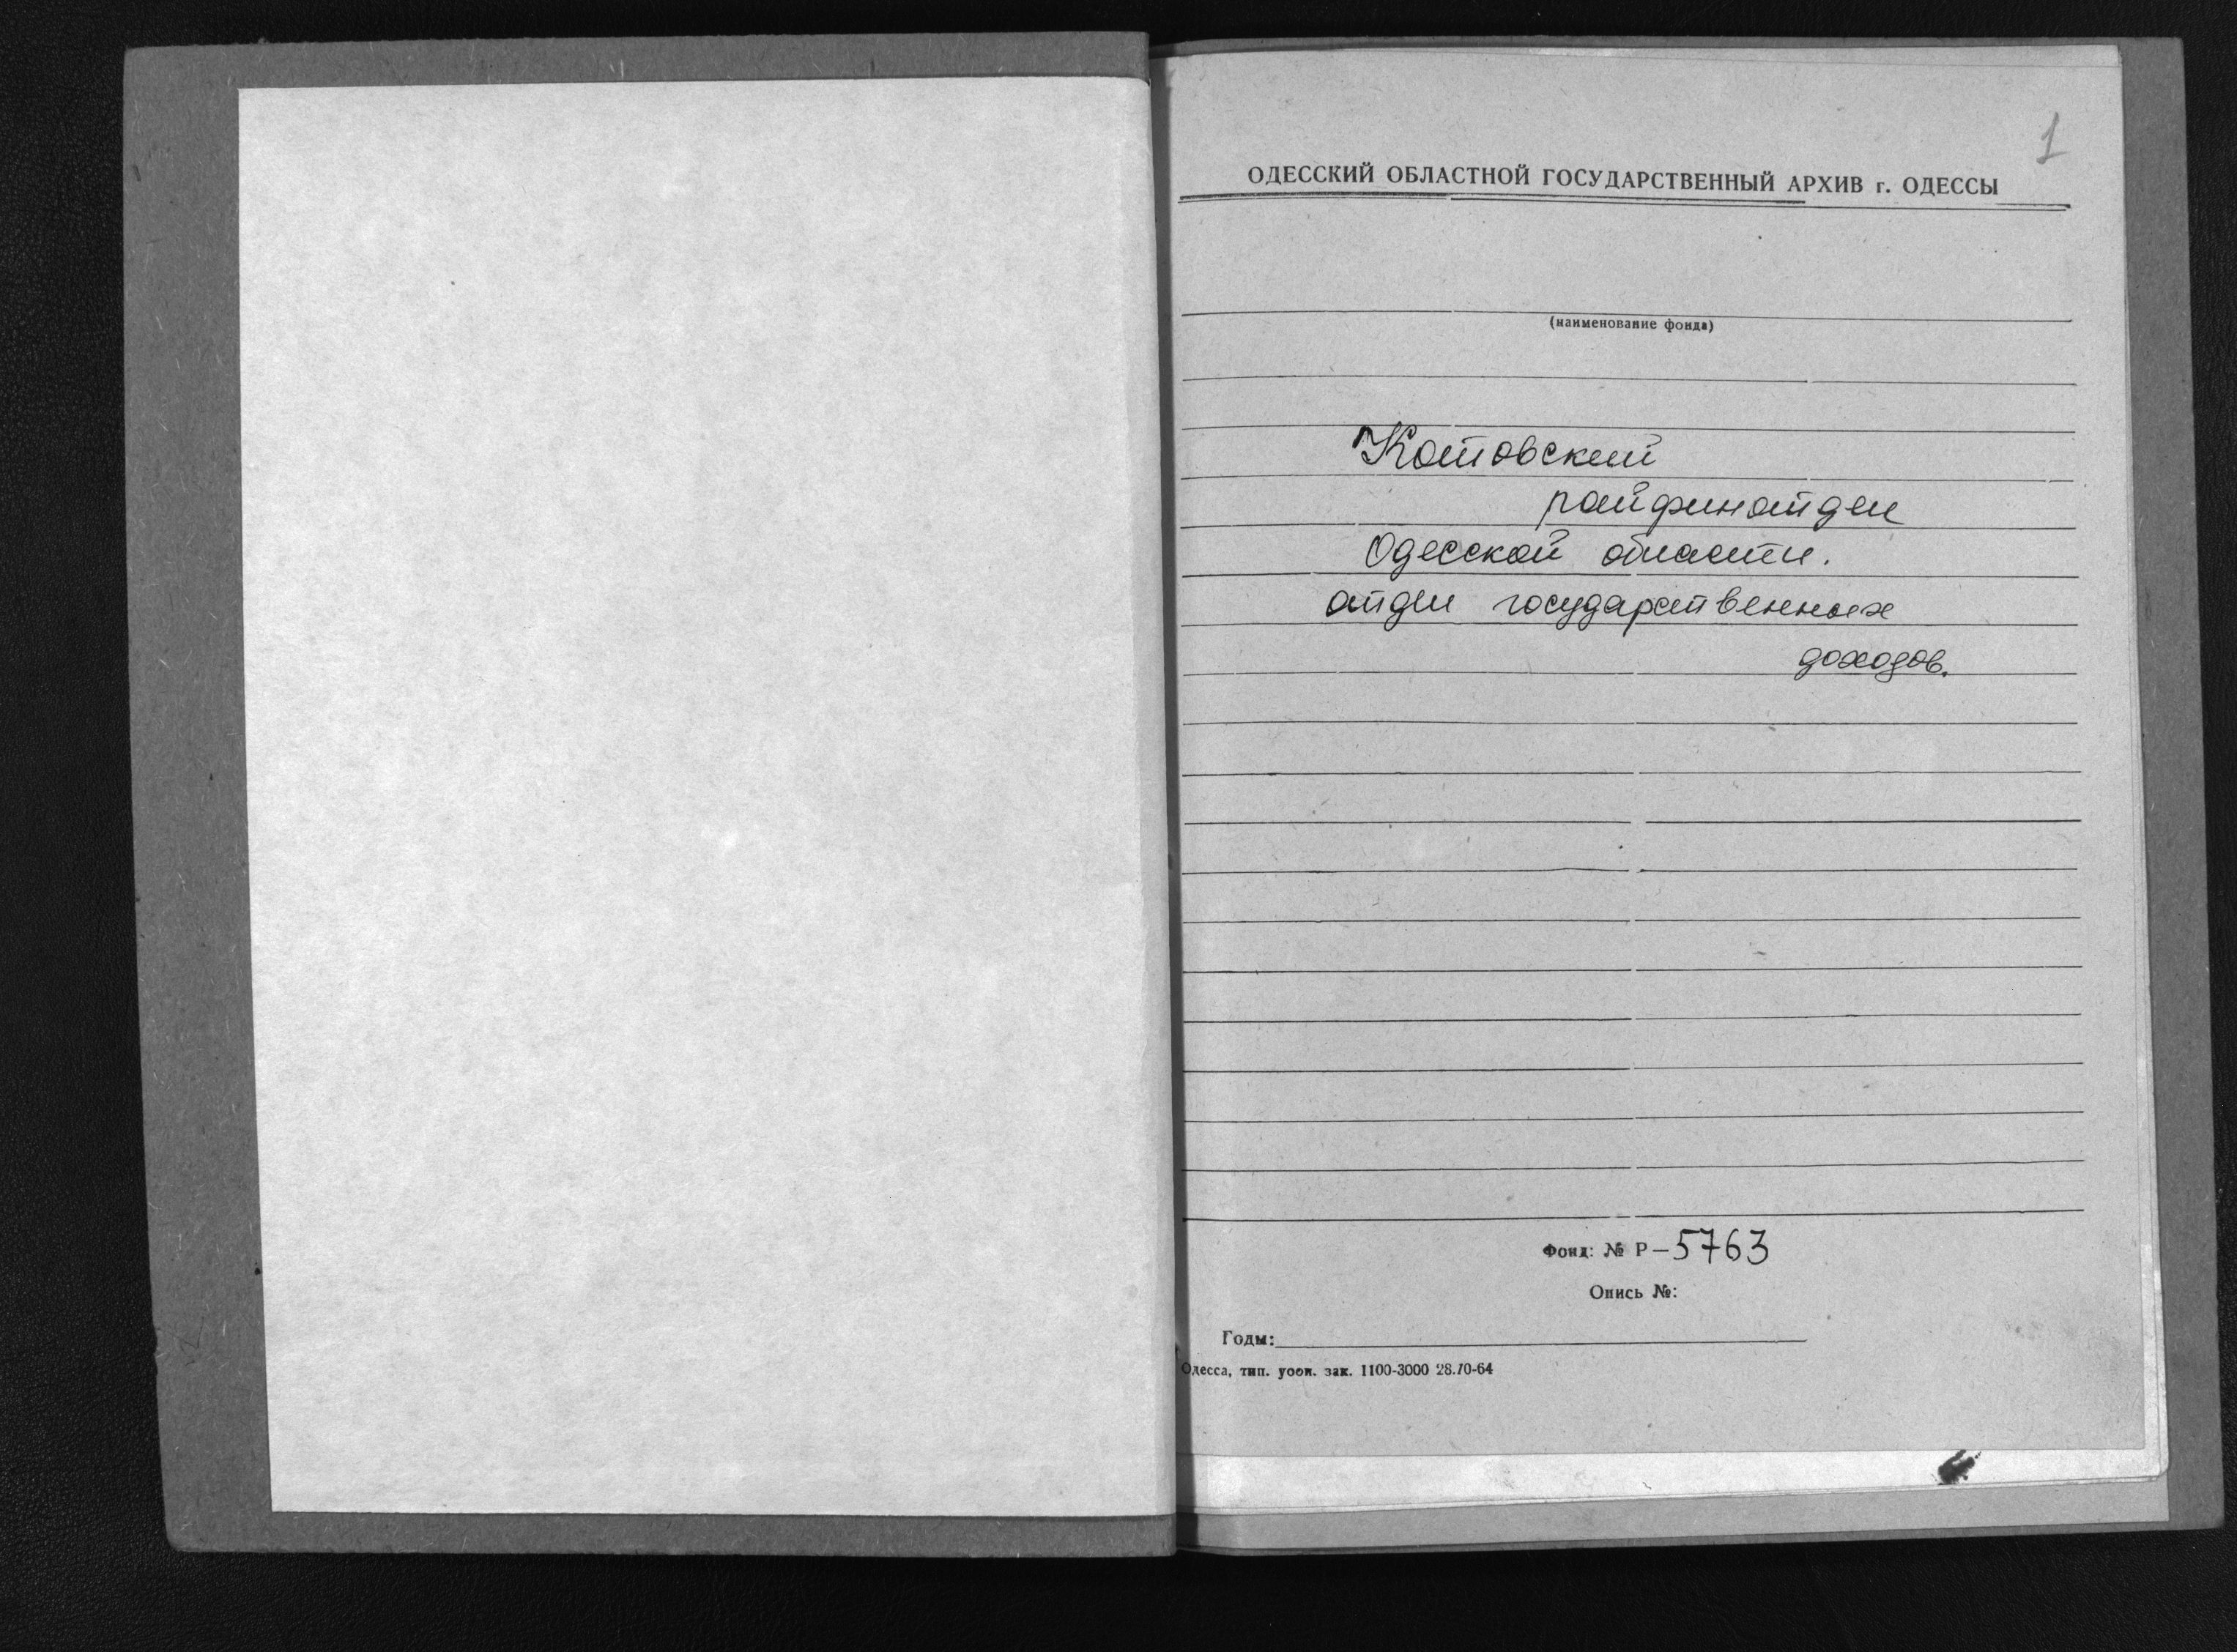 1
ОДЕССКИЙ ОБЛАСТНОЙ ГОСУДАРСТВЕННЫЙ АРХИВ г. ОДЕССЫ
(наименование фонда)
Котовский
райфинотдел
Одесской области.
отдел государственных
доходов.
Фонд: № Р-5763
Опись №:
Годы:
Одесса, тип. уоои. зак. 1100-3000 28.10-64